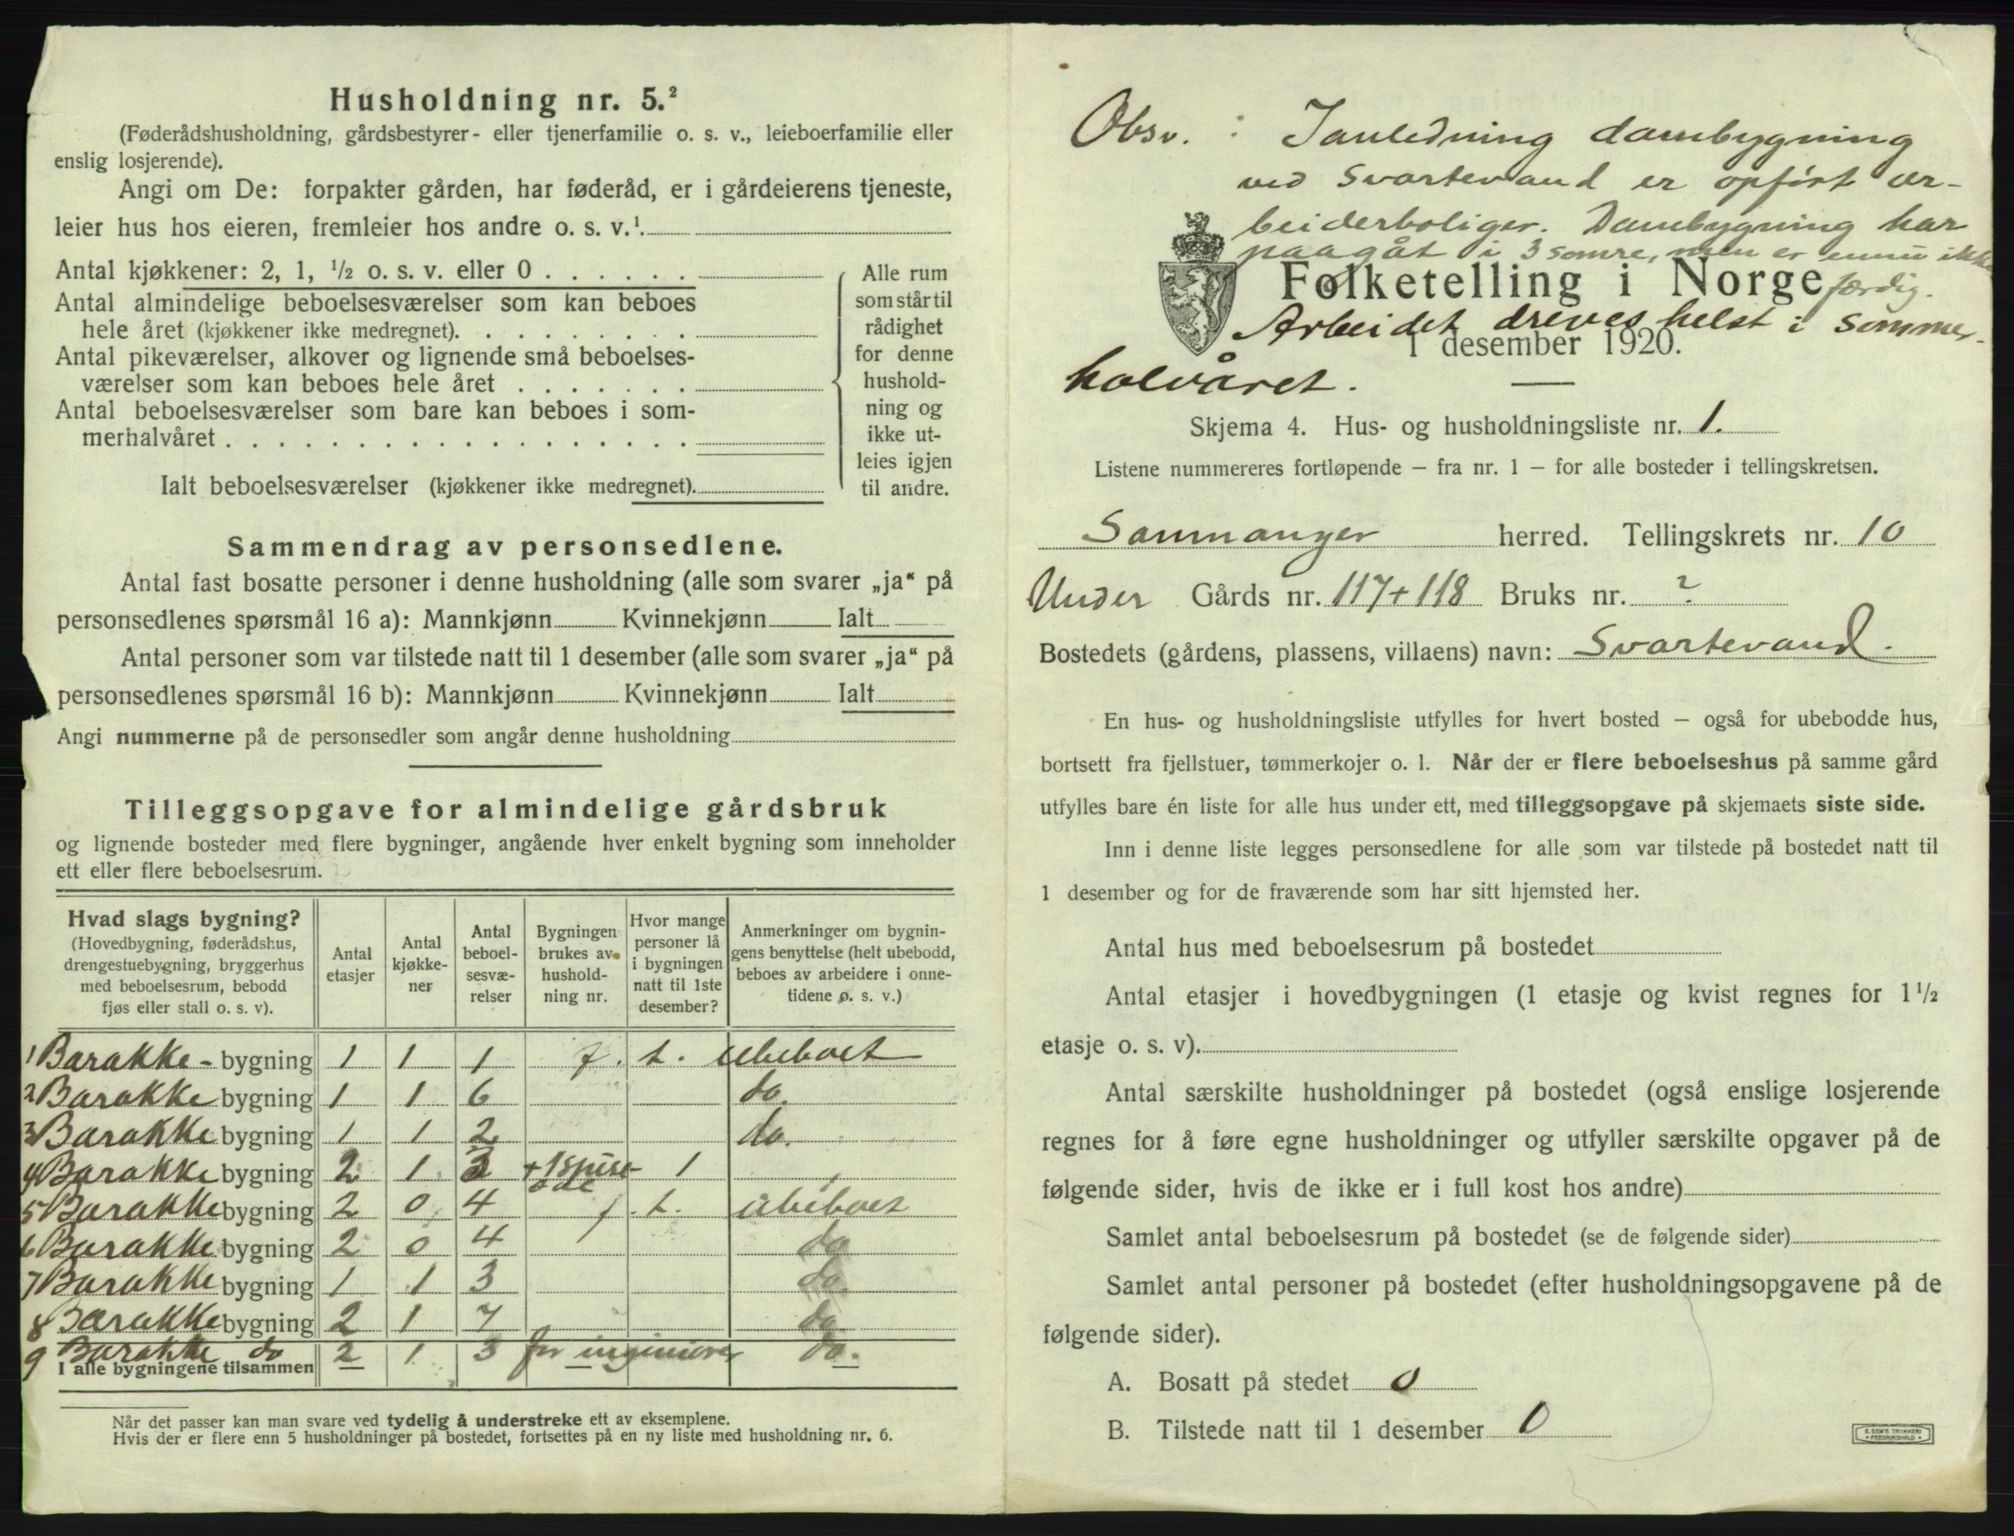 Husholdning nr. 5.²
(Føderådshusholdning, gårdsbestyrer- eller tjenerfamilie o. s. v., leieboerfamilie eller
enslig losjerende).
Angi om De: forpakter gården, har føderåd, er i gårdeierens tjeneste,
leier hus hos eieren, fremleier hos andre o. s. v.¹.
Antal kjøkkener: 2, 1, ½ o. s. v. eller 0
Antal almindelige beboelsesværelser som kan beboes
hele året (kjøkkener ikke medregnet).
Antal pikeværelser, alkover og lignende små beboelses-
værelser som kan beboes hele året
Antal beboelsesværelser som bare kan beboes i som-
merhalvåret
Ialt beboelsesværelser (kjøkkener ikke medregnet).
Alle rum
som står til
rådighet
for denne
hushold-
ning og
ikke ut-
leies igjen
til andre.
Sammendrag av personsedlene.
Antal fast bosatte personer i denne husholdning (alle som svarer „ja“ på
personsedlenes spørsmål 16 a): Mannkjønn Kvinnekjønn Ialt
Antal personer som var tilstede natt til 1 desember (alle som svarer „ja“ på
personsedlenes spørsmål 16 b): Mannkjønn Kvinnekjønn Ialt
Angi nummerne på de personsedler som angår denne husholdning
Tilleggsopgave for almindelige gårdsbruk
og lignende bosteder med flere bygninger, angående hver enkelt bygning som inneholder
ett eller flere beboelsesrum.
Hvad slags bygning?
(Hovedbygning, føderådshus,
drengestuebygning, bryggerhus
med beboelsesrum, bebodd
fjøs eller stall o. s. v).
Antal
etasjer
Antal
kjøkke-
ner
Antal
beboel-
sesvæ-
relser
Bygningen
brukes av
hushold-
ning nr.
Hvor mange
personer lå
i bygningen
natt til 1ste
desember?
Anmerkninger om bygnin-
gens benyttelse (helt ubebodd,
beboes av arbeidere i onne-
tidene o. s. v.)
1 Barakke - bygning 1 1 1 f. t. ubeboet
2 Barakke bygning 1 1 6 do.
3 Barakke bygning 1 1 2 do.
4 Barakke bygning 2 1 3 + 1 spise- 1
5 Barakke bygning 2 0 4 f. t. ubeboet
6 Barakke bygning 2 0 4 do
7 Barakke bygning 1 1 3 do.
8 Barakke bygning 2 1 7 do
9 Barakke do 2 1 3 for ingeniører do.
I alle bygningene tilsammen
Når det passer kan man svare ved tydelig å understreke ett av eksemplene.
Hvis der er flere enn 5 husholdninger på bostedet, fortsettes på en ny liste med husholdning nr. 6.
Obsv. : Ianledning dambygning
ved Svartevand er opført ar-
beiderboliger. Dambygning har
paagåt i 3 somre, men er ennu ikke
færdig.
Folketelling i Norge
Arbeidet dreves helst i sommer-
1 desember 1920.
halvåret.
Skjema 4. Hus- og husholdningsliste nr. 1.
Listene nummereres fortløpende – fra nr. 1 – for alle bosteder i tellingskretsen.
Sammanger herred. Tellingskrets nr. 10
Under Gårds nr. 117+118 Bruks nr. ?
Bostedets (gårdens, plassens, villaens) navn: Svartevand.
En hus- og husholdningsliste utfylles for hvert bosted – også for ubebodde hus,
bortsett fra fjellstuer, tømmerkojer o. l. Når der er flere beboelseshus på samme gård
utfylles bare én liste for alle hus under ett, med tilleggsopgave på skjemaets siste side.
Inn i denne liste legges personsedlene for alle som var tilstede på bostedet natt til
1 desember og for de fraværende som har sitt hjemsted her.
Antal hus med beboelsesrum på bostedet
Antal etasjer i hovedbygningen (1 etasje og kvist regnes for 1½
etasje o. s. v).
Antal særskilte husholdninger på bostedet (også enslige losjerende
regnes for å føre egne husholdninger og utfyller særskilte opgaver på de
følgende sider, hvis de ikke er i full kost hos andre)
Samlet antal beboelsesrum på bostedet (se de følgende sider)
Samlet antal personer på bostedet (efter husholdningsopgavene på de
følgende sider).
A. Bosatt på stedet 0
B. Tilstede natt til 1 desember 0
E. SEM'S TRYKKERI
FREDRIKSHALD